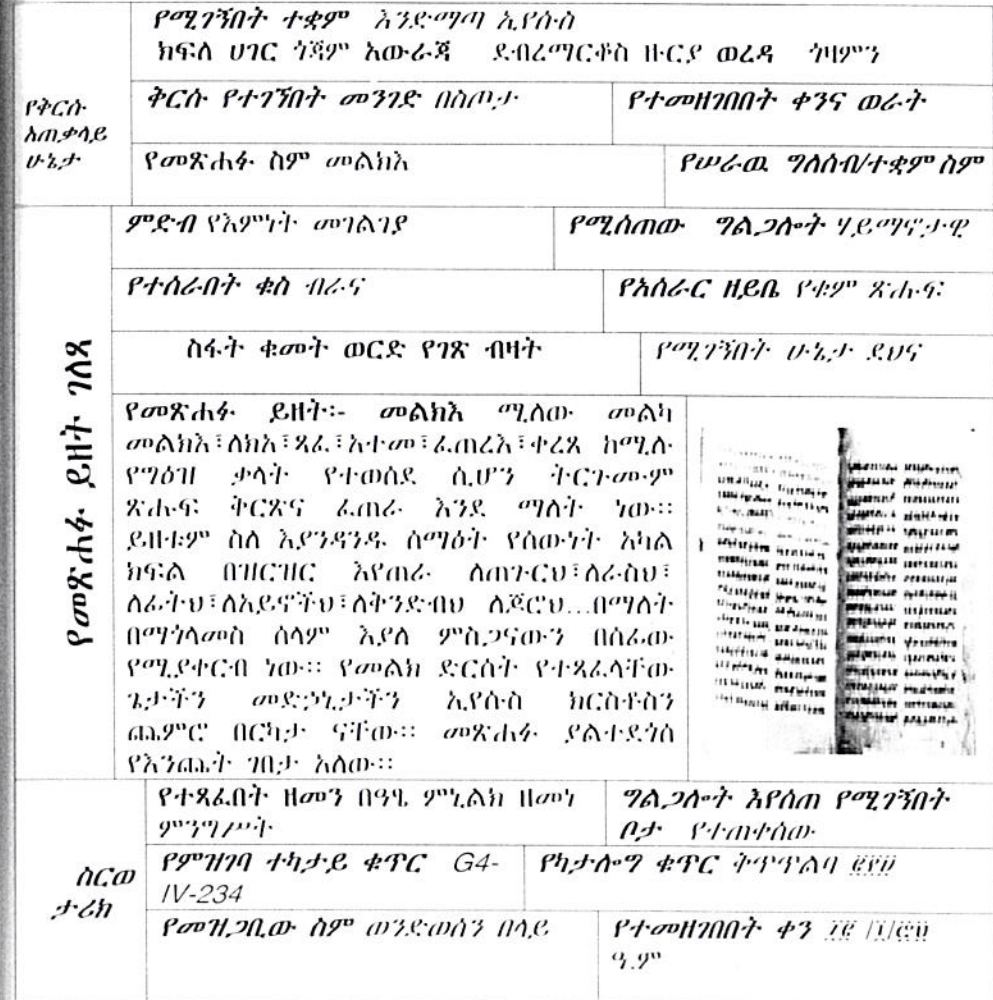 የሚገኝበት ተቋም እንድማጣ ኢየሱስ
ክፍለ ሀገር ጎጃም አውራጃ ደብረማርቆስ ዙርያ ወረዳ ጎዛምን
የቅርሱ
አጠቃላይ
ሁኔታ
ቅርሱ የተገኘበት መንገድ በስጦታ
የተመዘገበበት ቀንና ወራት
የመጽሐፉ ስም መልክእ
የሠራዉ ግለሰብ/ተቋም ስም
የመጽሐፉ ይዘት ገለጻ
ምድብ የእምነት መገልገያ
የሚሰጠው ግልጋሎት ሃይማኖታዊ
የተሰራበት ቁስ ብራና
የአሰራር ዘይቤ የቁም ጽሑፍ
ስፋት ቁመት ወርድ የገጽ ብዛት
የሚገኝበት ሁኔታ ደህና
የመጽሐፉ ይዘት፡- መልክእ ሚለው መልካ
መልክእ፣ለክአ፣ጻፈ፣አተመ፣ፈጠረእ፣ቀረጸ ከሚሉ
የግዕዝ ቃላት የተወሰደ ሲሆን ትርጉሙም
ጽሑፍ ቅርጽና ፈጠራ እንደ ማለት ነው።
ይዘቱም ስለ እያንዳንዱ ሰማዕት የሰውነት አካል
ክፍል በዝርዝር እየጠራ ለጠጉርህ፣ለራስህ፣
ለፊትህ፣ለአይኖችህ፣ለቅንድብህ ለጆሮህ...በማለት
በማጎላመስ ሰላም እያለ ምስጋናውን በሰፊው
የሚያቀርብ ነው። የመልክ ድርሰት የተጻፈላቸው
ጌታችን መድኃኒታችን ኢየሱስ ክርስቶስን
ጨምሮ በርካታ ናቸው። መጽሐፉ ያልተደጎሰ
የእንጨት ገበታ አለው።
ስርወ
ታሪክ
የተጻፈበት ዘመን በዓፄ ምኒልክ ዘመነ
ምንግሥት
ግልጋሎት እየሰጠ የሚገኝበት
ቦታ የተጠቀሰው
የምዝገባ ተካታይ ቁጥር G4-
IV-234
የካታሎግ ቁጥር ቅጥጥልባ
የመዝጋቢው ስም ወንድወሰን በላይ
የተመዘገበበት ቀን
ዓ.ም